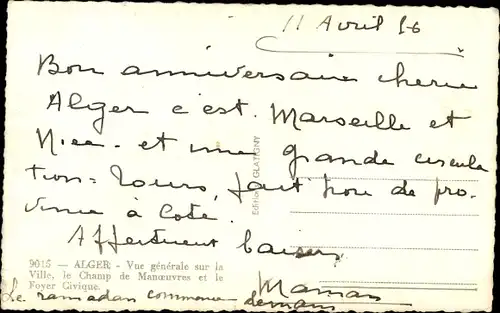 11 Avril 56
Bon anniversaire cherie
Alger c'est Marseille et
Nice - et une grande circula
tion = Tours, fait pore de pro-
vince à Coté.
Affectueux baisers
Maman
Le ramadan commence demain
9015 — ALGER - Vue générale sur la
Ville, le Champ de Manœuvres et le
Foyer Civique.
GLATIGNY